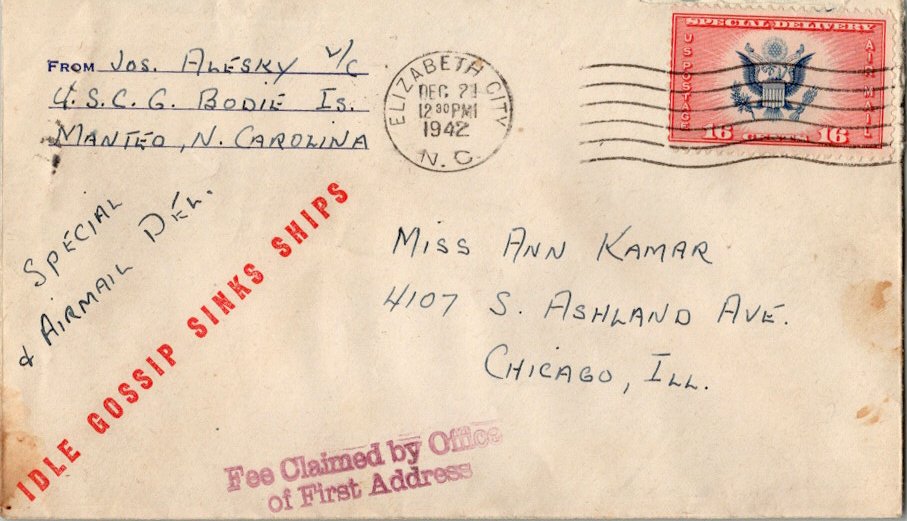 FROM JOS. ALESKY
U.S.C.G. BODIE IS.
MANTEO, N. CAROLINA
ELIZABETH CITY
DEC
12 30 PM
1942
N. C.
SPECIAL DELIVERY
US POSTAGE
AIR MAIL
16 CENTS 16
SPECIAL
& AIRMAIL DEL.
IDLE GOSSIP SINKS SHIPS
MISS ANN KAMAR
4107 S. ASHLAND AVE.
CHICAGO, ILL.
Fee Claimed by Office
of First Address